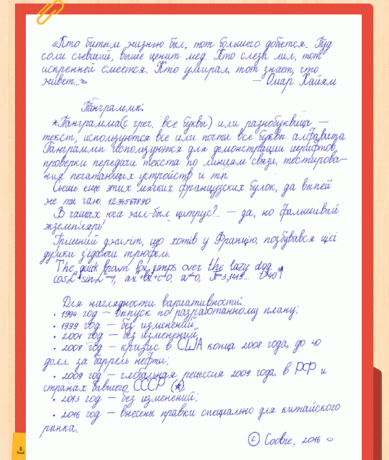 «Кто битым жизнью был, тот большего добьётся. Пуд
соли съевший, выше ценит мёд. Кто слёзы лил, тот
искренней смеётся. Кто умирал, тот знает, что
живёт.» — Омар Хайям
Панграммы:
*Панграмма(с греч. "все буквы) или разнобуквица —
текст, использующий все или почти все буквы алфавита.
Панграммы используются для демонстрации шрифтов,
проверки передачи текста по линиям связи, тестирова-
ния печатающих устройств и т.п.
Съешь ещё этих мягких французских булок, да выпей
же ты чаю. 1234567890
В чащах юга жил-был цитрус? — да, но фальшивый
экземпляръ!
Гришний джигіт, що хотів у Францію, позбувався цієї
думки з'їдаючи трюфель.
The quick brown fox jumps over the lazy dog
Для наглядности вариативности:
• 1994 год — выпуск по разработанному плану;
• 1999 год — без изменений;
• 2001 год — без изменений;
• 2008 год — кризис в США конца 2008 года, до 40
долл. за баррель нефти;
• 2009 год — глобальная рецессия 2009 года. в РФ и
странах бывшего СССР
• 2013 год — без изменений;
• 2016 год — внесены правки специально для китайского
рынка.
© Coobie, 2016